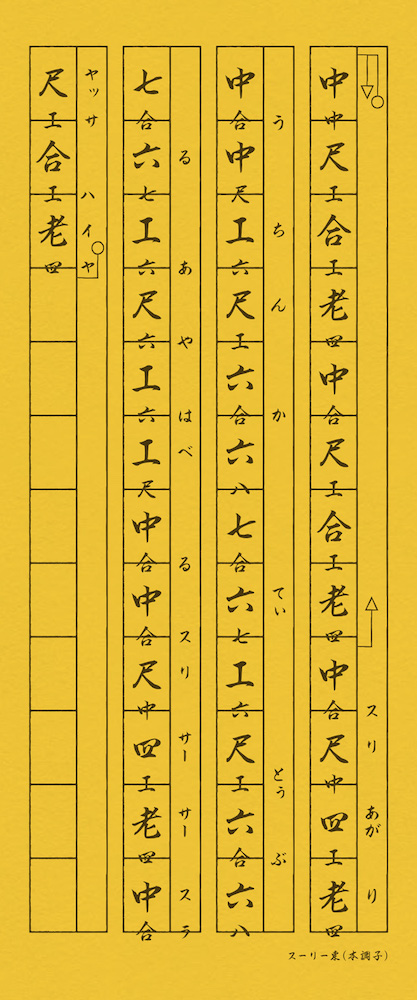 中中尺工合工老四中合尺工合工老四中合尺中四工老四
スリあがり
中合中尺工六尺工六合六八七合六七工六尺工六合六八
うちんかてぃとぅぶ
七合六七工六尺六工六工尺中合中合尺中四工老四中合
るあやはべるスリサーサースラ
尺工合工老四
ヤッサハイヤ
スーリー東(本調子)